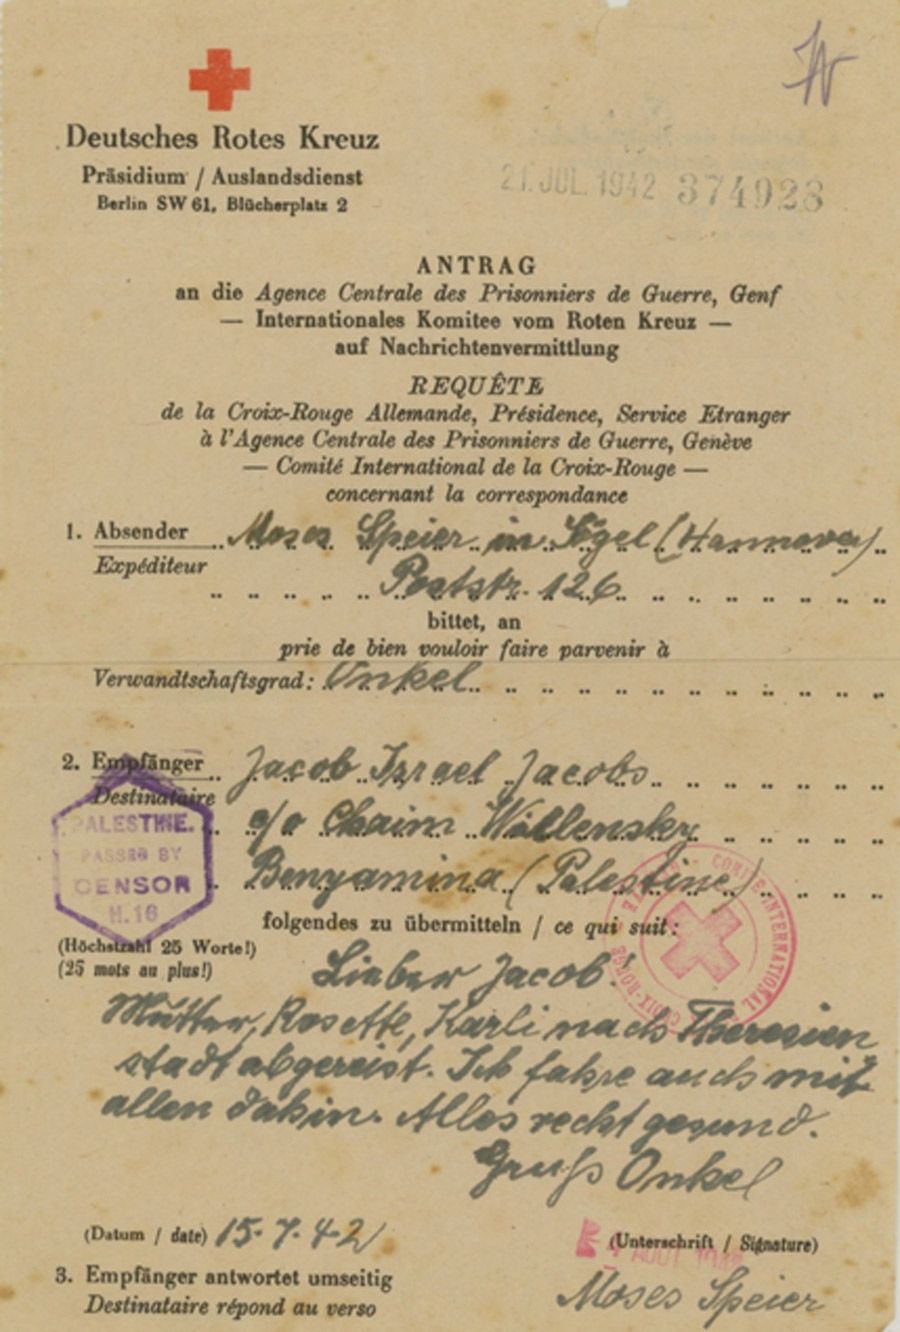 Deutsches Rotes Kreuz
Präsidium / Auslandsdienst
Berlin SW 61, Blücherplatz 2
21. JUL. 1942 374928
ANTRAG
an die Agence Centrale des Prisonniers de Guerre, Genf
— Internationales Komitee vom Roten Kreuz —
auf Nachrichtenvermittlung
REQUÊTE
de la Croix-Rouge Allemande, Présidence, Service Etranger
à l'Agence Centrale des Prisonniers de Guerre, Genève
— Comité International de la Croix-Rouge —
concernant la correspondance
1. Absender Moses Speier in Sögel (Hannover)
Expéditeur
Poststr. 126
bittet, an
prie de bien vouloir faire parvenir à
Verwandtschaftsgrad: Onkel
2. Empfänger Jacob Israel Jacobs
Destinataire
c/o Chaim Wollensky
Benyamina (Palestine)
PALESTINE.
PASSED BY
CENSOR
H.16
COMITE INTERNATIONAL
CROIX-ROUGE
folgendes zu übermitteln / ce qui suit:
(Höchstzahl 25 Worte!)
(25 mots au plus!)
Lieber Jacob!
Mutter, Rosette, Karli nach Theresien
stadt abgereist. Ich fahre auch mit
allen dahin. Alles recht gesund.
Gruß Onkel
(Datum / date) 15.7.42
(Unterschrift / Signature)
AOUT
3. Empfänger antwortet umseitig
Destinataire répond au verso
Moses Speier